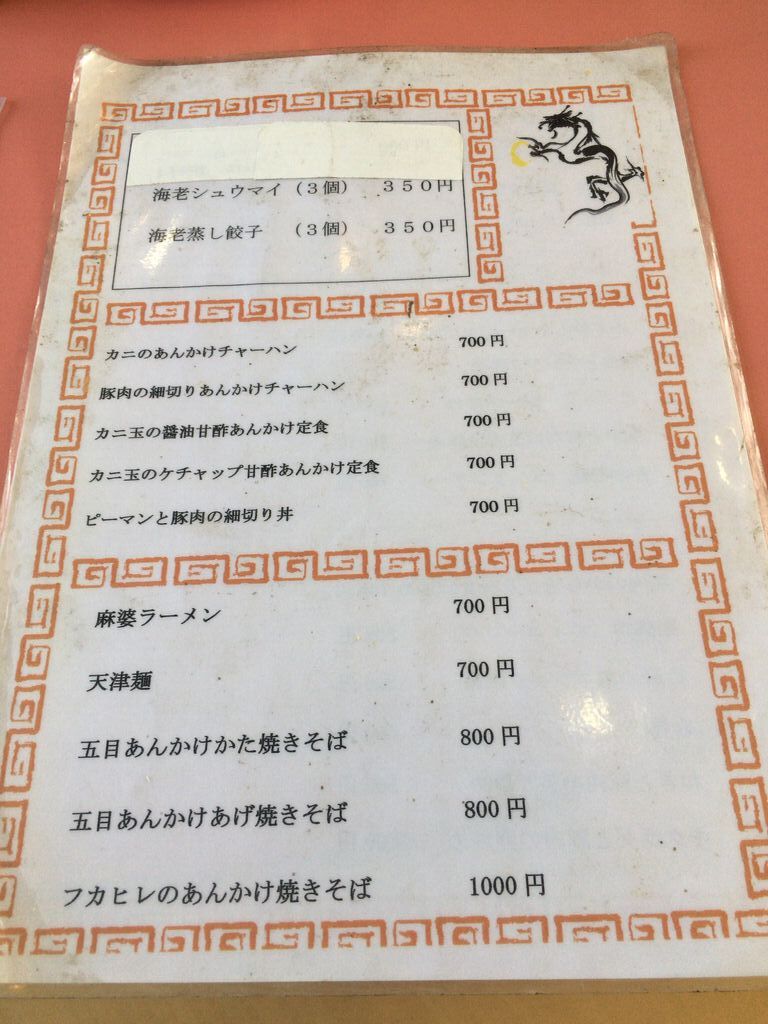 海老シュウマイ（３個） ３５０円
海老蒸し餃子 （３個） ３５０円
カニのあんかけチャーハン 700 円
豚肉の細切りあんかけチャーハン 700 円
カニ玉の醤油甘酢あんかけ定食 700 円
カニ玉のケチャップ甘酢あんかけ定食 700 円
ピーマンと豚肉の細切り丼 700 円
麻婆ラーメン 700 円
天津麺 700 円
五目あんかけかた焼きそば 800 円
五目あんかけあげ焼きそば 800 円
フカヒレのあんかけ焼きそば 1000 円